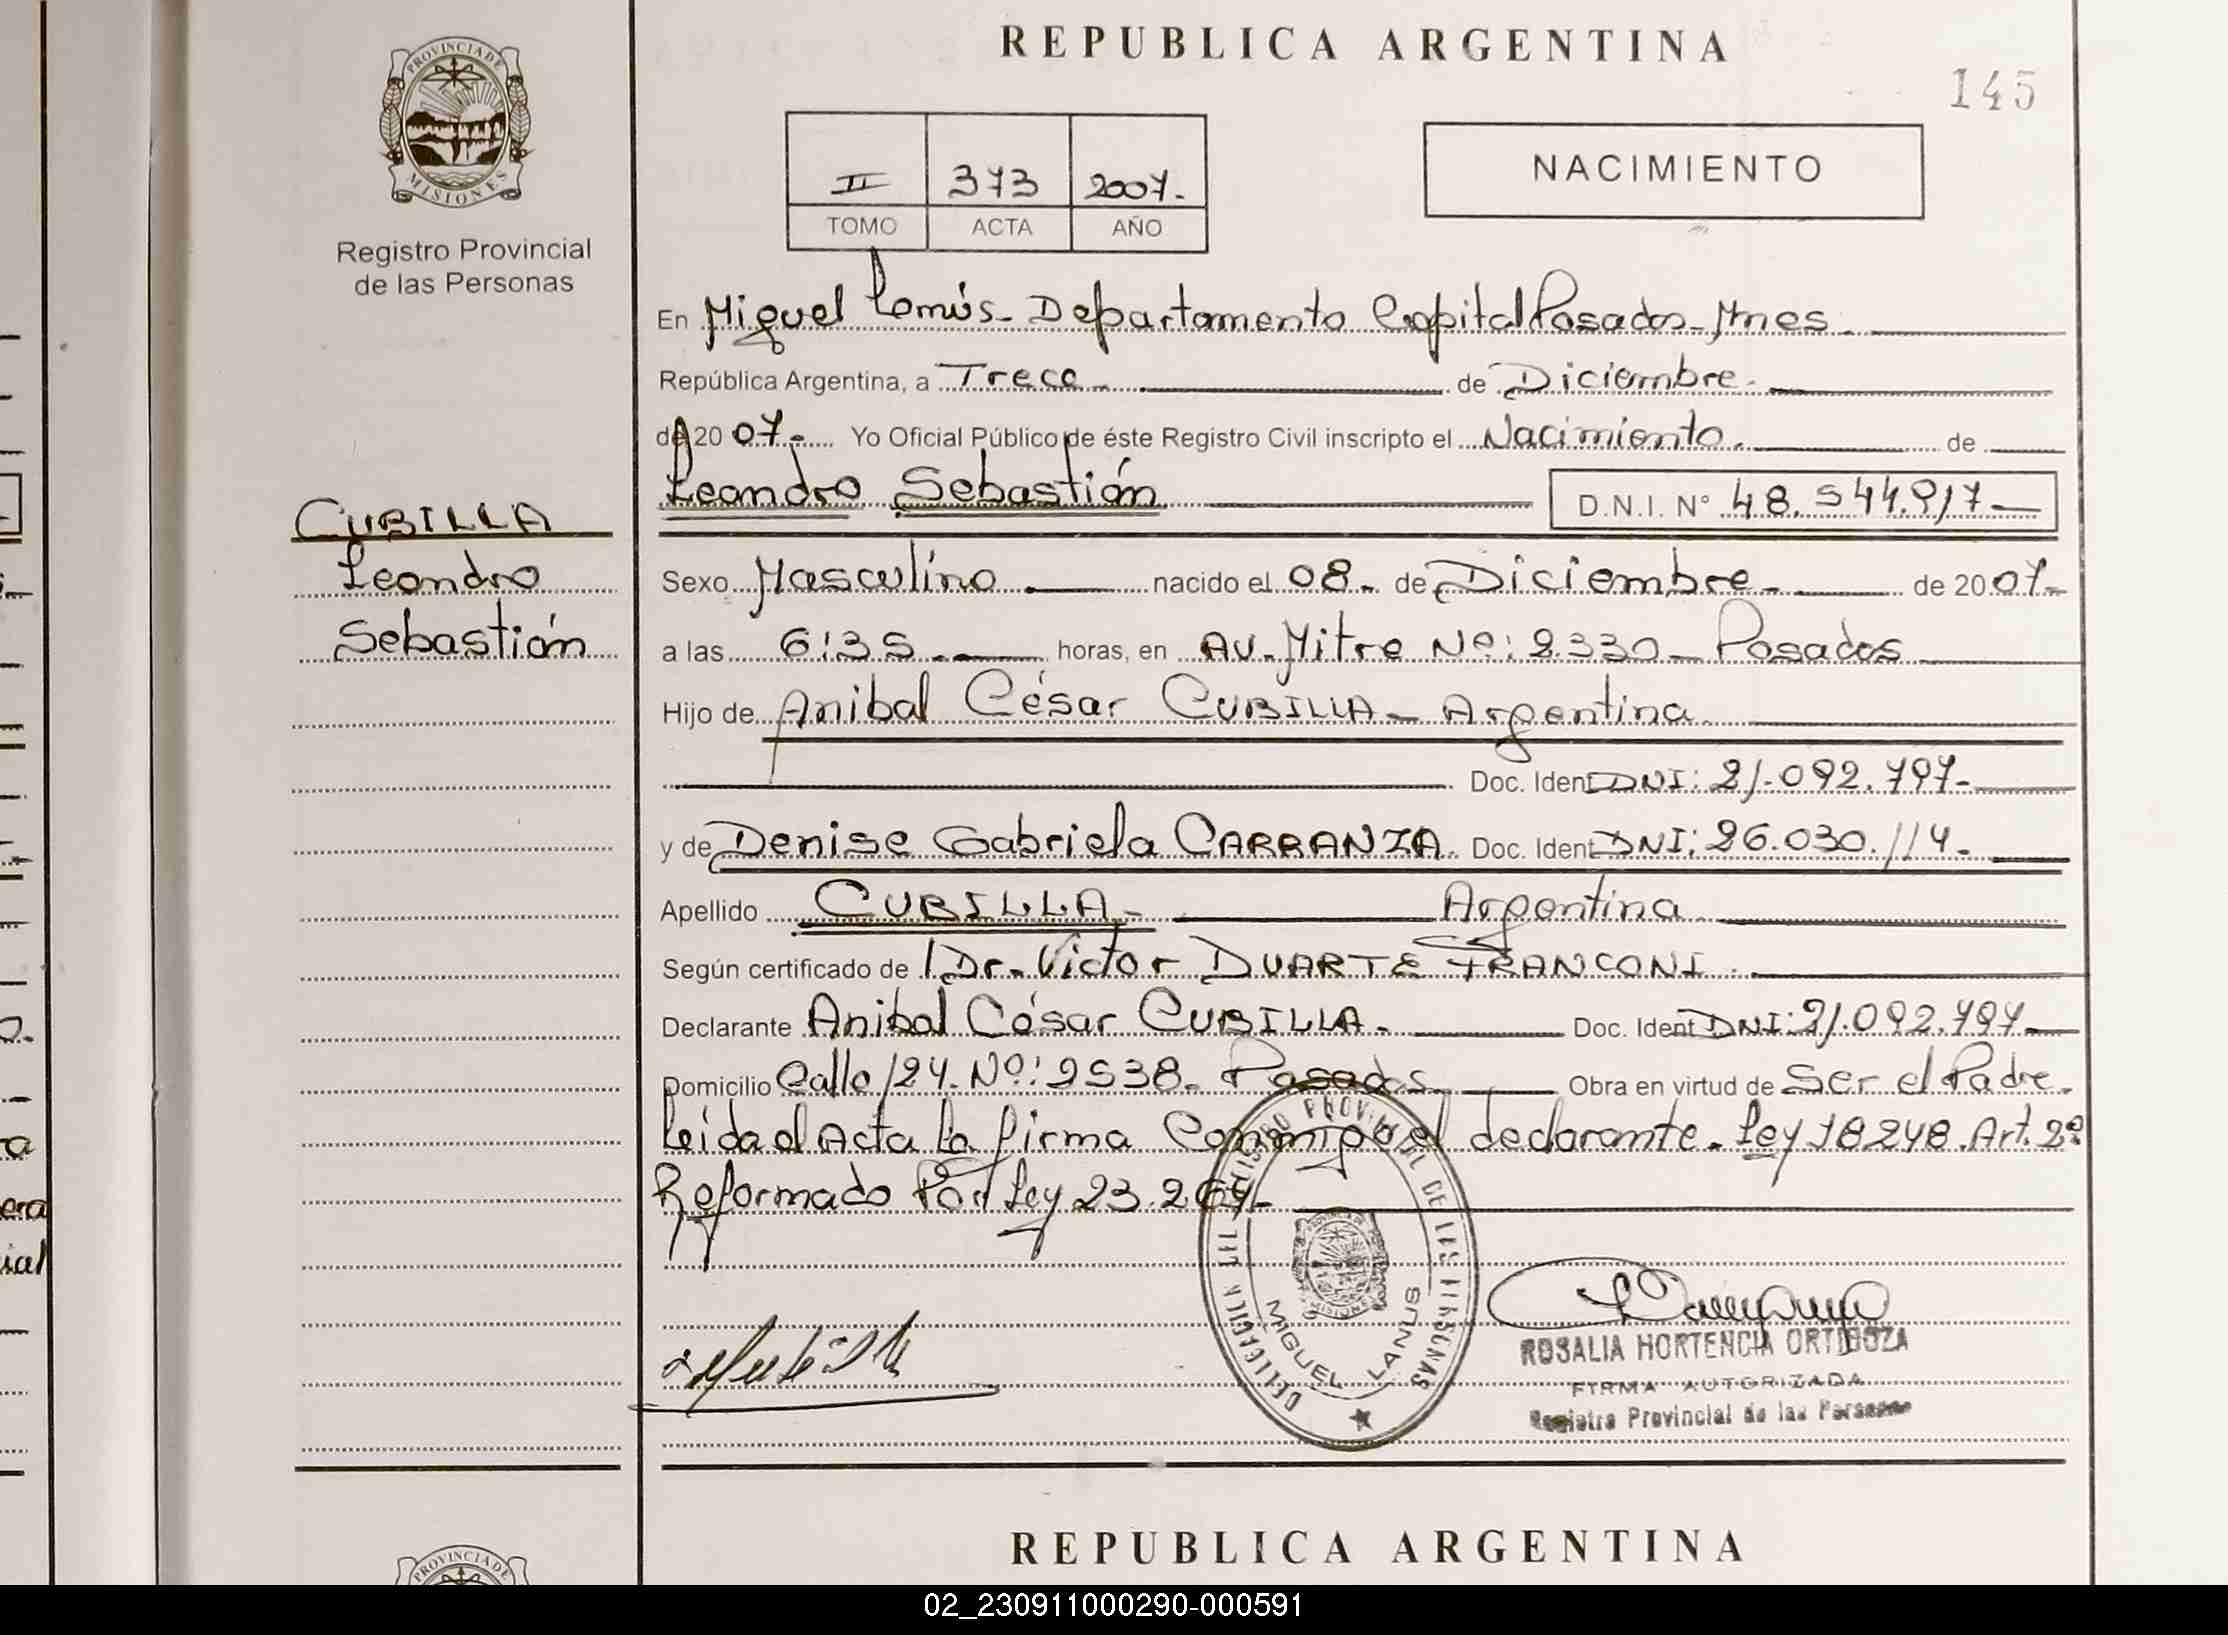 REPUBLICA ARGENTINA
145
PROVINCIA DE
MISIONES
Registro Provincial
de las Personas
II 373 2007.-
TOMO ACTA AÑO
NACIMIENTO
En Miguel Lanús - Departamento Capital Posadas - Mnes.
República Argentina, a Trece de Diciembre.-
de 20 07.- Yo Oficial Público de éste Registro Civil inscripto el Nacimiento. de
Leandro Sebastián D.N.I. N° 48.544.917
CUBILLA
Leandro
Sebastián
Sexo Masculino nacido el 08.- de Diciembre.- de 20 07.-
a las 6:35.- horas, en Av. Mitre Nº: 2330 - Posadas
Hijo de Anibal César CUBILLA - Argentina.
Doc. Ident DNI: 21.092.797-
y de Denise Gabriela CARRANZA. Doc. Ident DNI: 26.030.114.-
Apellido CUBILLA.- Argentina.
Según certificado de Dr. Victor DUARTE FRANCONI.
Declarante Anibal César CUBILLA.- Doc. Ident DNI: 21.092.797-
Domicilio Calle 124. Nº: 2538. Posadas Obra en virtud de Ser el Padre.
Leida el Acta la firma Conmigo el declarante. Ley 18248. Art. 2º
Reformado Por Ley 23.264-
DELEGACION DEL REGISTRO PROVINCIAL DE LAS PERSONAS
MIGUEL LANUS
ROSALIA HORTENCIA ORTIGOZA
FIRMA AUTORIZADA
Registro Provincial de las Personas
REPUBLICA ARGENTINA
PROVINCIA DE
02_230911000290-000591